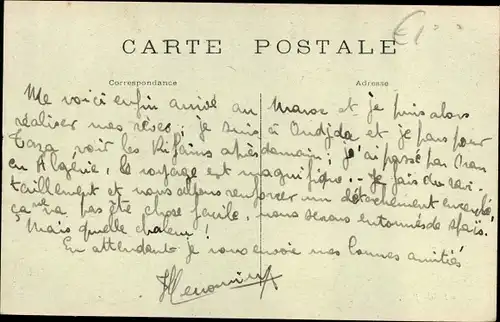 CARTE POSTALE
Correspondance
Adresse
Me voici enfin arrivé au Maroc et je puis alors
réaliser mes rêves ; je suis à Oudjda et je pars pour
Taza voir les Rifains après demain ; j'ai passé par Oran
en Algérie, le voyage est magnifique... Je fais du ravi-
taillement et nous allons renforcer un détachement encerclé,
ça ne va pas être chose facile, nous serons entourés de spahis.
Mais quelle chaleur !
En attendant je vous envoie mes bonnes amitiés